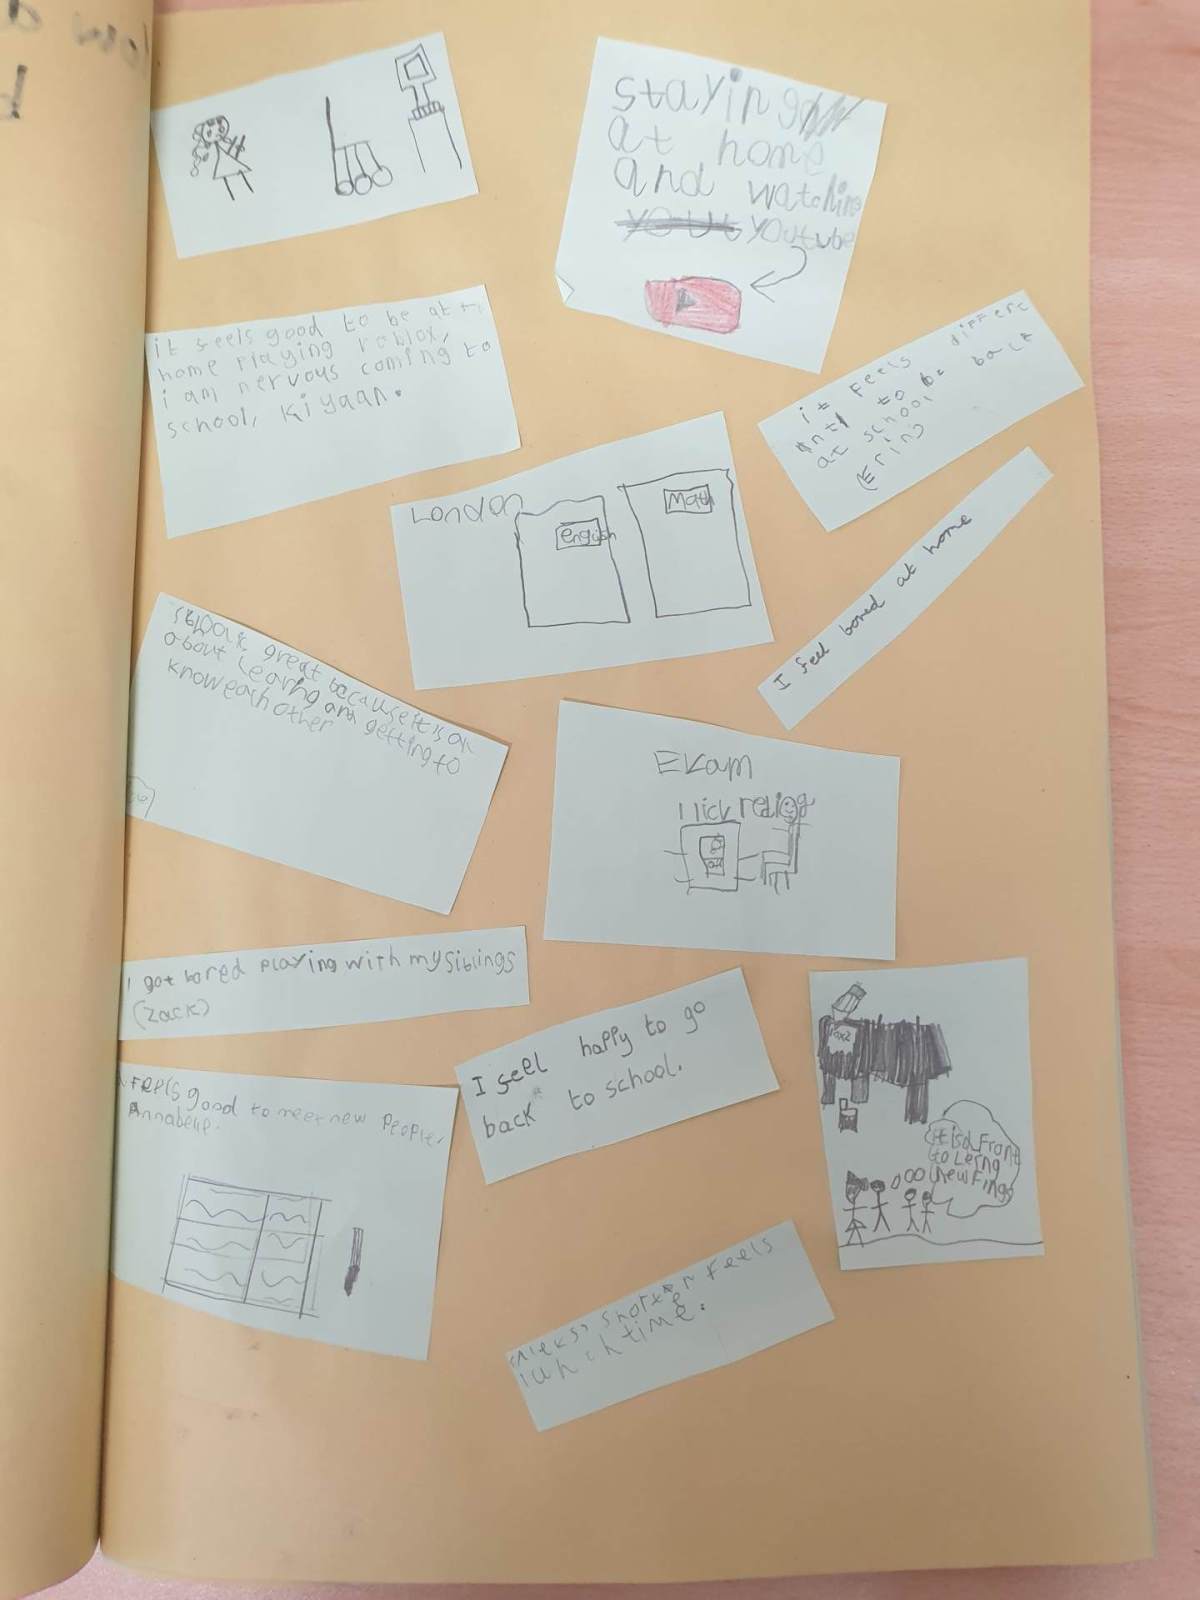 staying
at home
and watching
yout youtube
it feels good to be at
home playing roblox,
i am nervous coming to
school, Kiyaan.
it Feels differt
to be back
at school
(Erin)
London
english
Math
I feel bored at home
great because it is all
about Learing and getting to
know each other
Ekam
I lick reding
I got bored playing with my siblings
(Zack)
I feel happy to go
back to school.
Feels good to meet new people,
Annabelle.
it is a Front
to Lerng
new Fings
shorter Feels
lunch time.